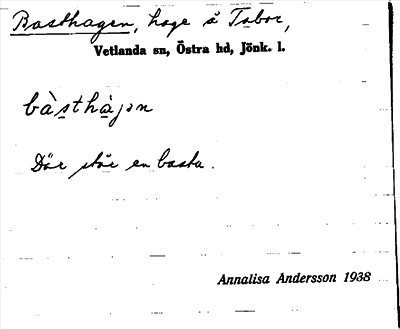 Basthagen, hage å Tabor,
Vetlanda sn, Östra hd, Jönk. l.
bàsthàgen
Där står en bastu.
Annalisa Andersson 1938